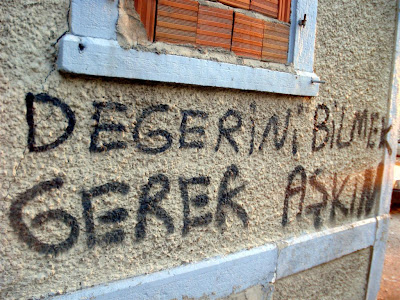 DEGERİNİ BİLMEK
GEREK AŞKIN